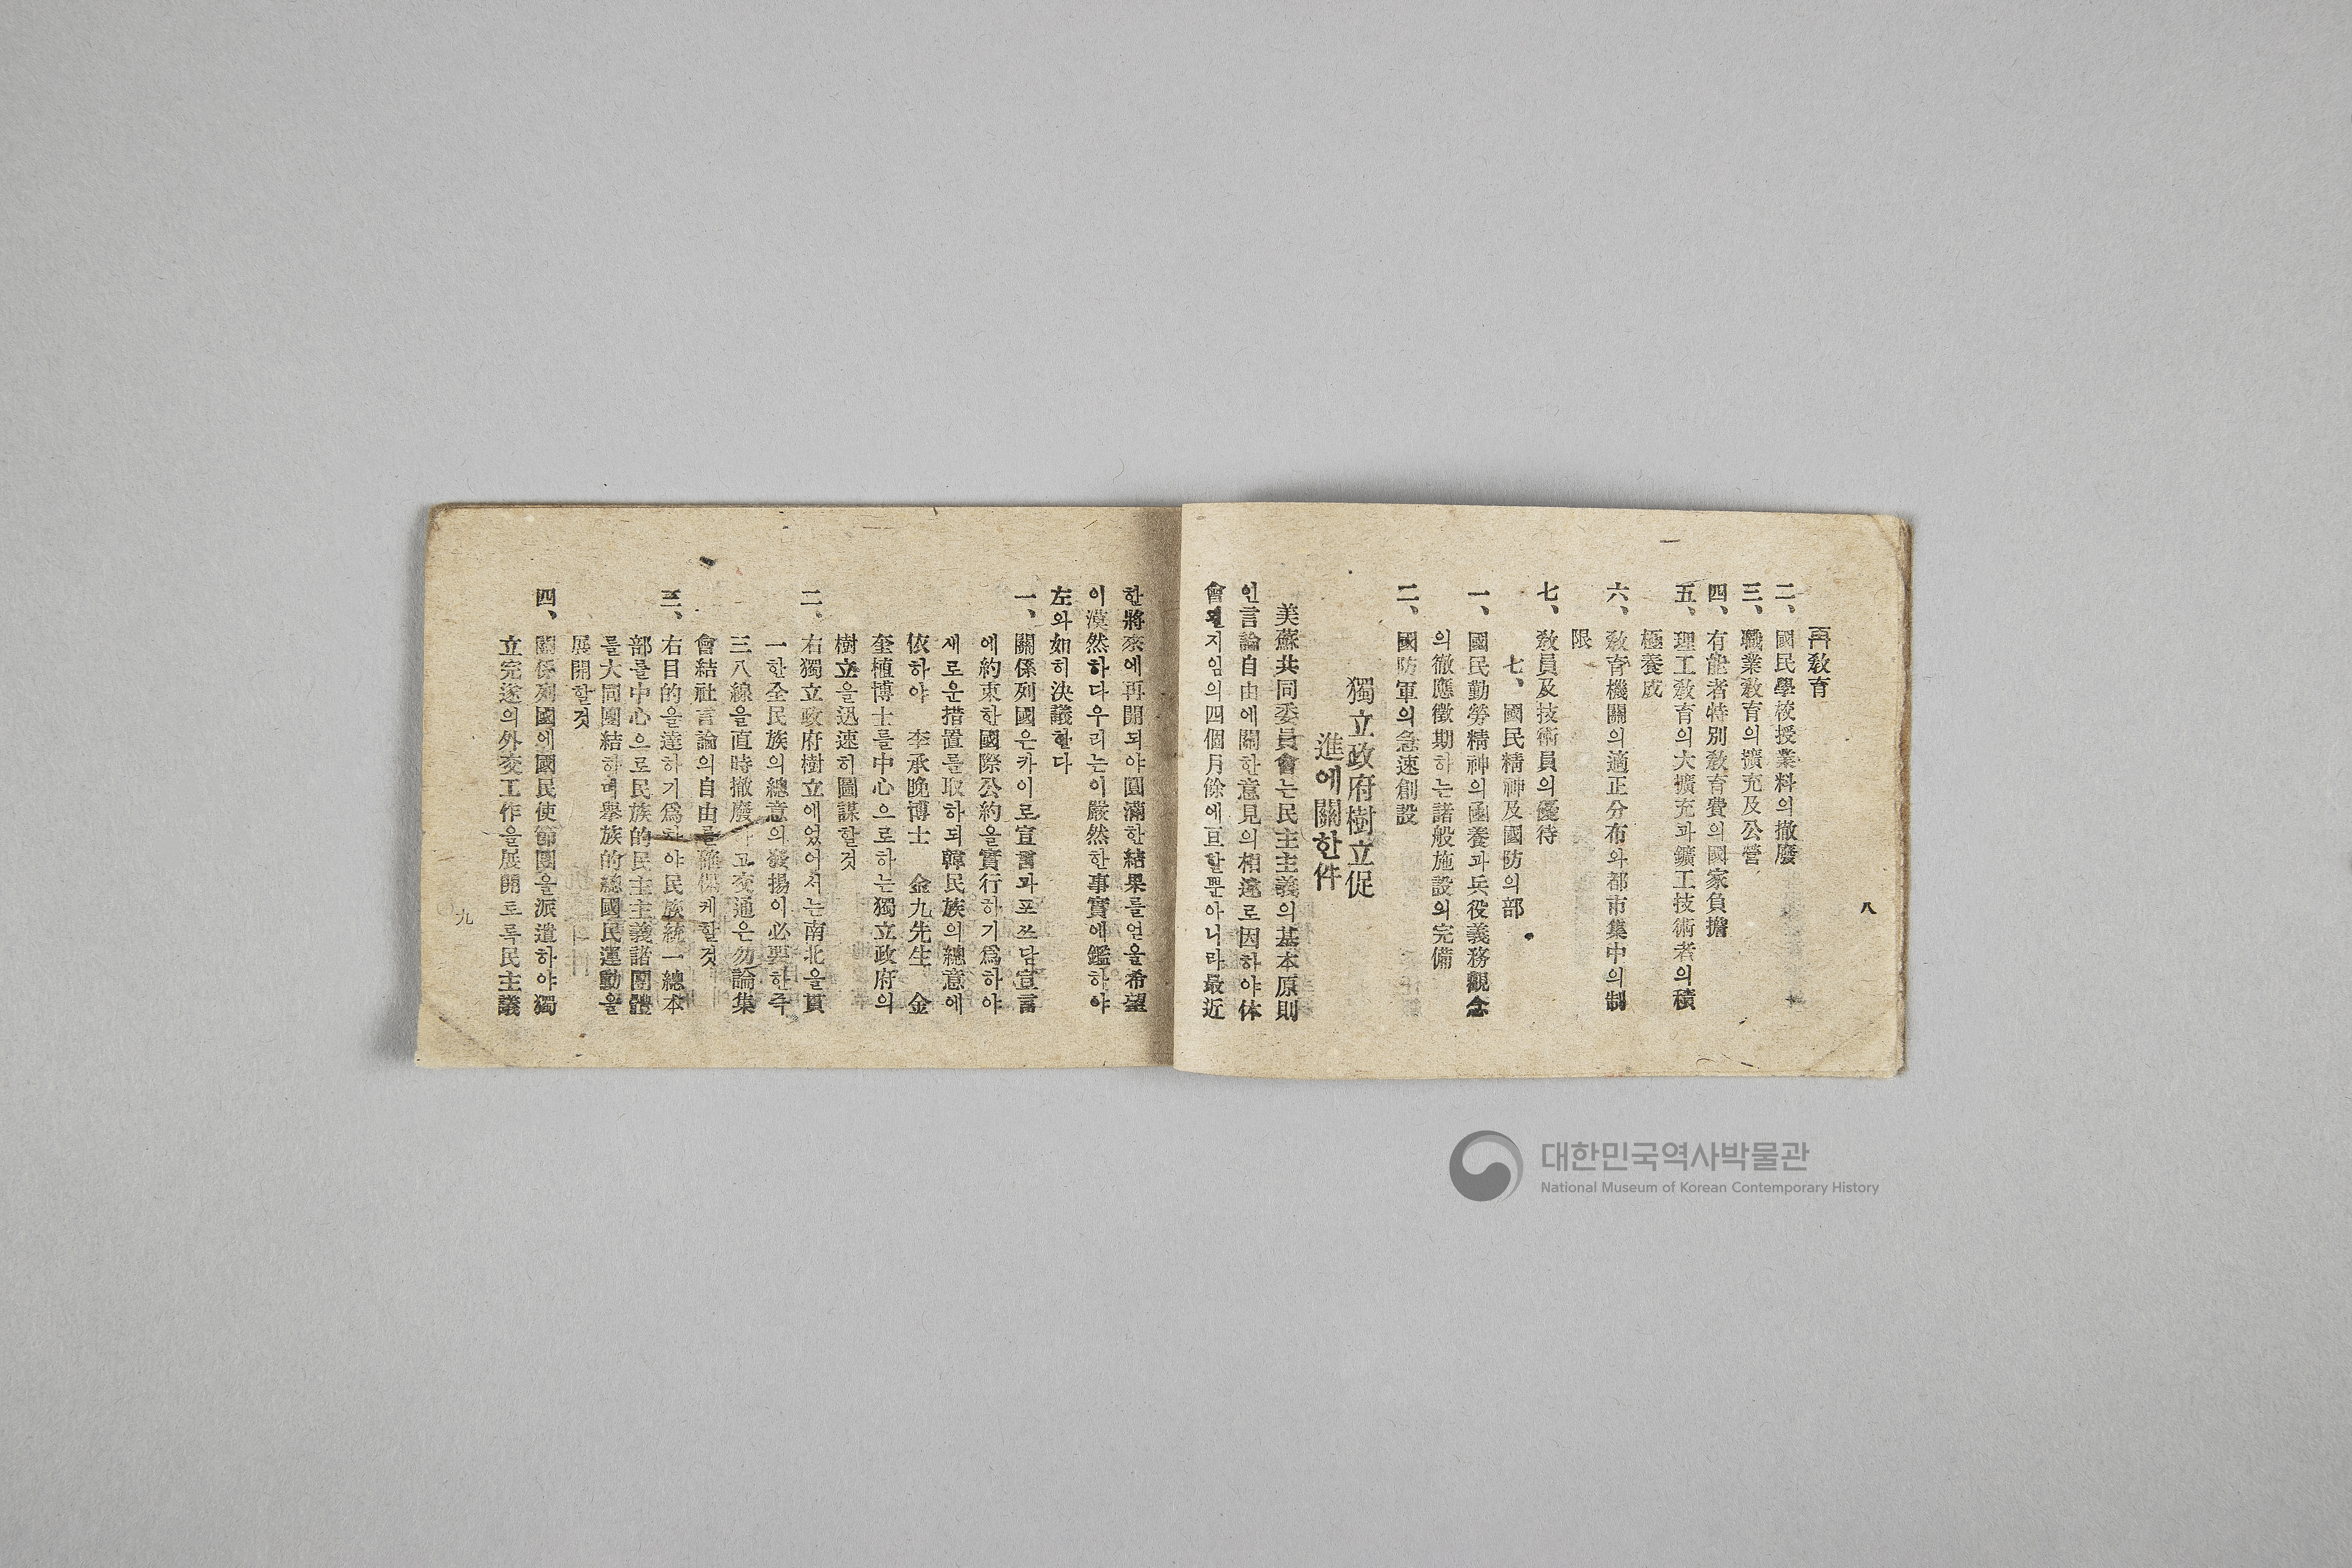 八
再敎育
二、國民學校授業料의撤廢
三、職業敎育의擴充及公營
四、有能者特別敎育費의國家負擔
五、理工敎育의大擴充과鑛工技術者의積
極養成
六、敎育機關의適正分布와都市集中의制
限
七、敎員及技術員의優待
七、國民精神及國防의部
一、國民勤勞精神의涵養과兵役義務觀念
의徹應徵期하는諸般施設의完備
二、國防軍의急速創設
獨立政府樹立促
進에關한件
美蘇共同委員會는民主主義의基本原則
인言論自由에關한意見의相違로因하야休
會 지임의四個月餘에亘할뿐아니라最近
한將來에再開되야圓滿한結果를얻을希望
이漠然하다우리는이嚴然한事實에鑑하야
左와如히決議한다
一、關係列國은카이로宣言과포쓰담宣言
에約束한國際公約을實行하기爲하야
새로운措置를取하되韓民族의總意에
依하야 李承晩博士 金九先生 金
奎植博士를中心으로하는獨立政府의
樹立을迅速히圖謀할것
二、右獨立政府樹立에있어서는南北을貫
一한全民族의總意의發揚이必要한즉
三八線을直時撤廢하고交通은勿論集
會結社言論의自由를確保케할것
三、右目的을達하기爲하야民族統一總本
部를中心으로民族的民主主義諸團體
를大同團結하며擧族的總國民運動을
展開할것
四、關係列國에國民使節團을派遣하야獨
立完遂의外交工作을展開토록民主議
九
대한민국역사박물관
National Museum of Korean Contemporary History